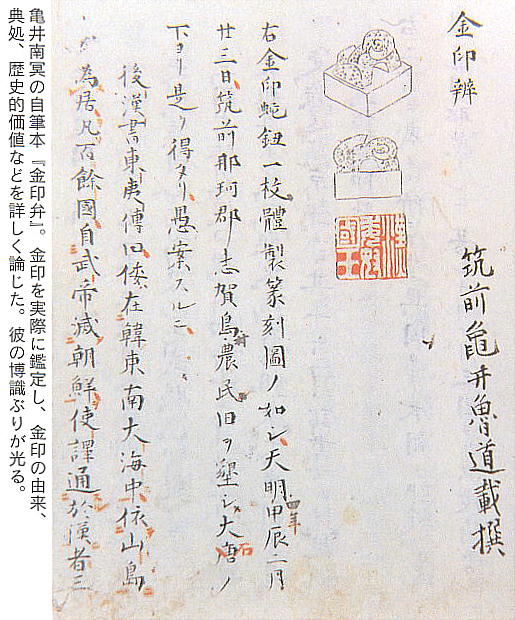 金印辨
筑前 龜井魯道載撰
漢委奴國王
右金印蛇鈕一枚體製篆刻圖ノ如シ天明四年甲辰二月
廿三日筑前那珂郡志賀島農民旧ヲ墾シ大石唐ノ
下ヨリ是ヲ得タリ愚案スルニ
後漢書東夷傳曰倭在韓東南大海中依山島
為居凡百餘國自武帝滅朝鮮使譯通於漢者三
亀井南冥の自筆本『金印弁』。金印を実際に鑑定し、金印の由来、
典処、歴史的価値などを詳しく論じた。彼の博識ぶりが光る。